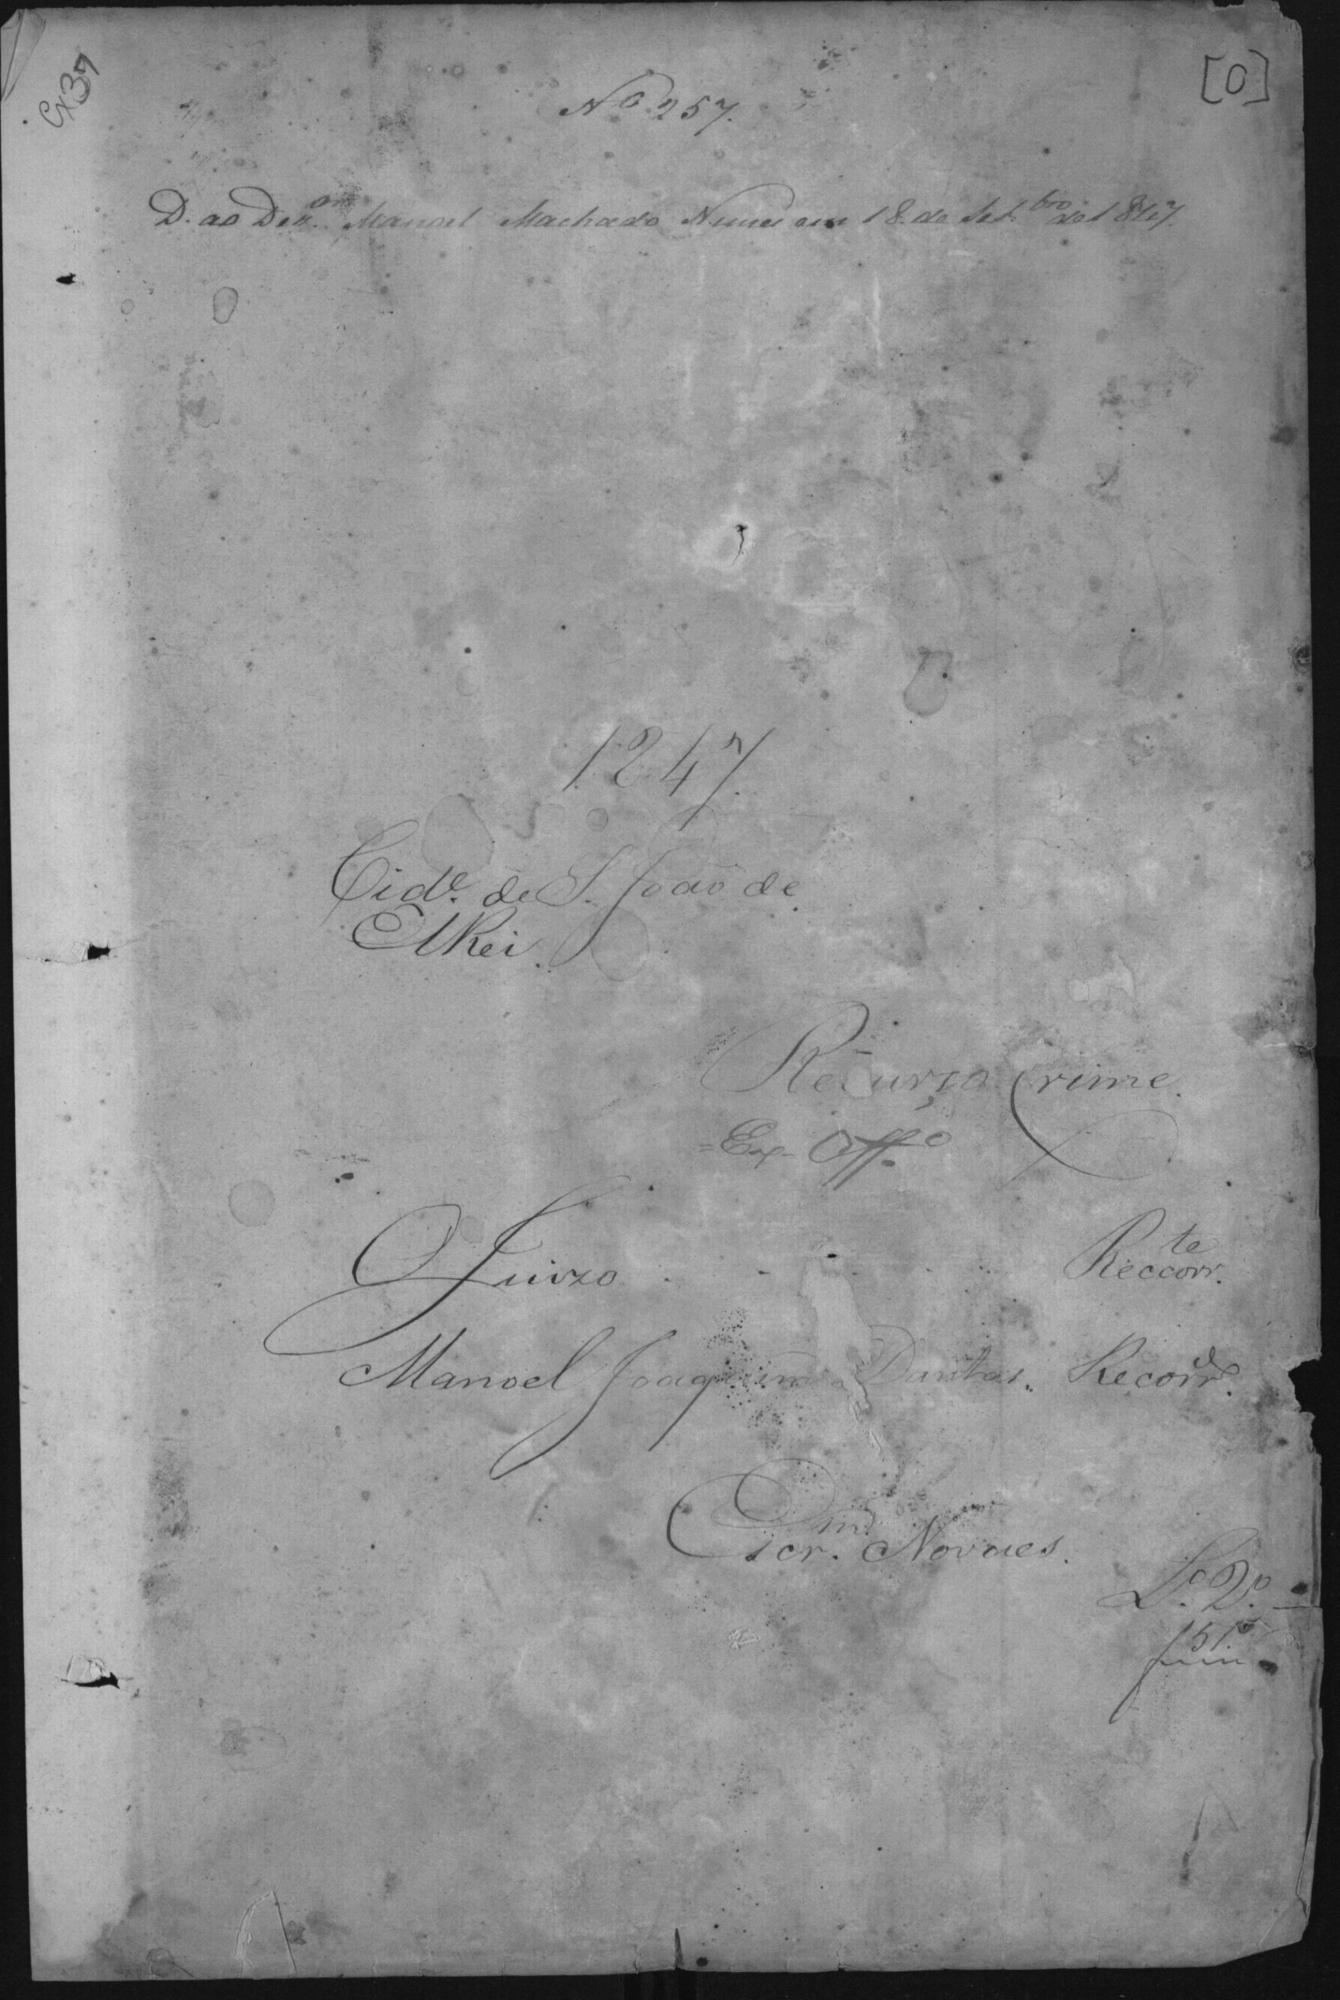 Cx 37
[0]
Nº 257.
D. ao Dez.or Manoel Machado Nunes em 18 de Set.bro de 1847.
1247.
Cid.e de S. João de
ElRei.
Recurso Crime.
=Ex-Off.o
O Juizo . . . . . . Reccorr.te
Manoel Joaquim Dantas. Recorr.do
Escr.m Novaes.
L.o 2.o
f 51.